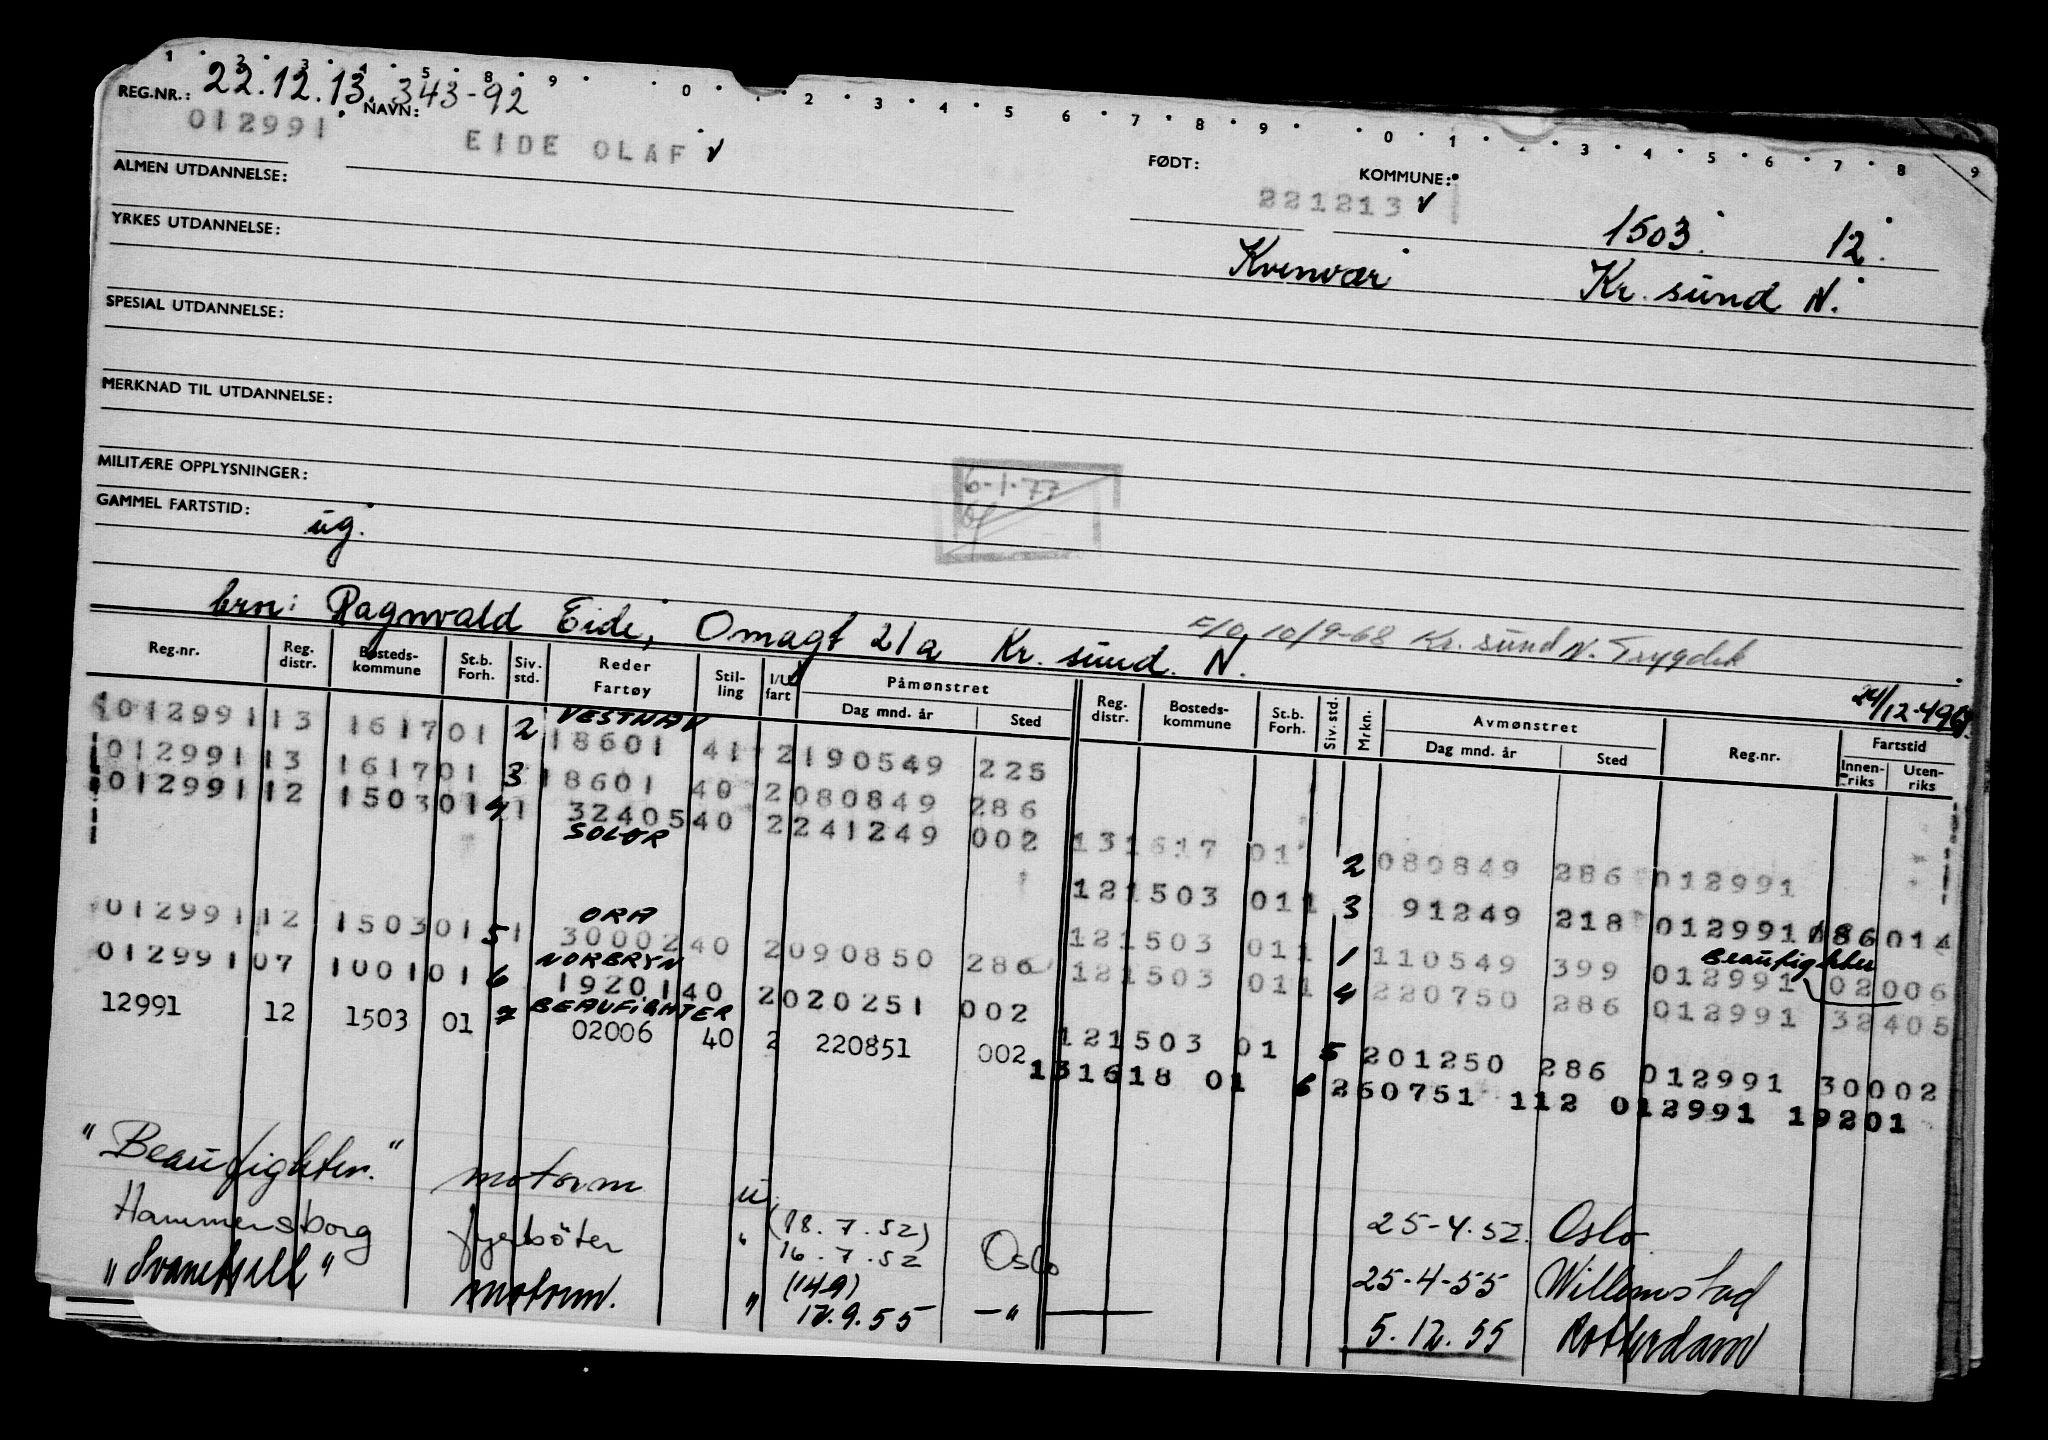 1 2 3 4 5 8 9 0 2 3 4 5 6 7 8 9 0 1 3 4 5 6 7 8 9
REG.NR.: 22.12.13. 343-92
NAVN:
012991 EIDE OLAF
FØDT: KOMMUNE:
221213
ALMEN UTDANNELSE:
1503. 12.
YRKES UTDANNELSE:
Kvenvær Kr. sund N.
SPESIAL UTDANNELSE:
MERKNAD TIL UTDANNELSE:
MILITÆRE OPPLYSNINGER:
6-1-77
GAMMEL FARTSTID: ug.
brn: Ragnvald Eide, Omagt 21a Kr. sund. N.
F/O 10/9-68 Kr. sund N. Trygdek
24/12-496
Reg.nr. Reg. distr. Bosteds-kommune St.b. Forh. Siv. std. Reder Fartøy Stil-ling I/U fart Påmønstret Dag mnd. år Sted Reg. distr. Bosteds-kommune St.b. Forh. Siv. std. Mrkn. Avmønstret Dag mnd. år Sted Reg.nr. Fartstid Innen-riks Uten-riks
VESTNAV
012991 13 1617 01 2 18601 41 2 190549 225
012991 13 1617 01 3 18601 40 2 080849 286
012991 12 1503 01 4 32405 40 2 241249 002
SOLØR
13 1617 01 2 080849 286 012991
12 1503 011 3 91249 218 012991 014
ORA
012991 12 1503 01 5 30002 40 2 090850 286
12 1503 011 1 110549 399 012991 02006
Beaufighter
NORBRYN
012991 07 1001 01 6 19201 40 2 020251 002
12 1503 011 4 220750 286 012991 32405
BEAUFIGHTER
12991 12 1503 01 7 02006 40 2 220851 002
12 1503 01 5 201250 286 012991 30002
13 1618 01 6 260751 112 012991 19201
"Beaufighter." motorm u 25-4-52. Oslo
Hammersborg fyrbøter " (18.7.52) 16.7.52 Oslo 25-4-55 Willemstad
"Svanefjell" motorm. " (149) 17.9.55 -"- 5.12.55 Rotterdam